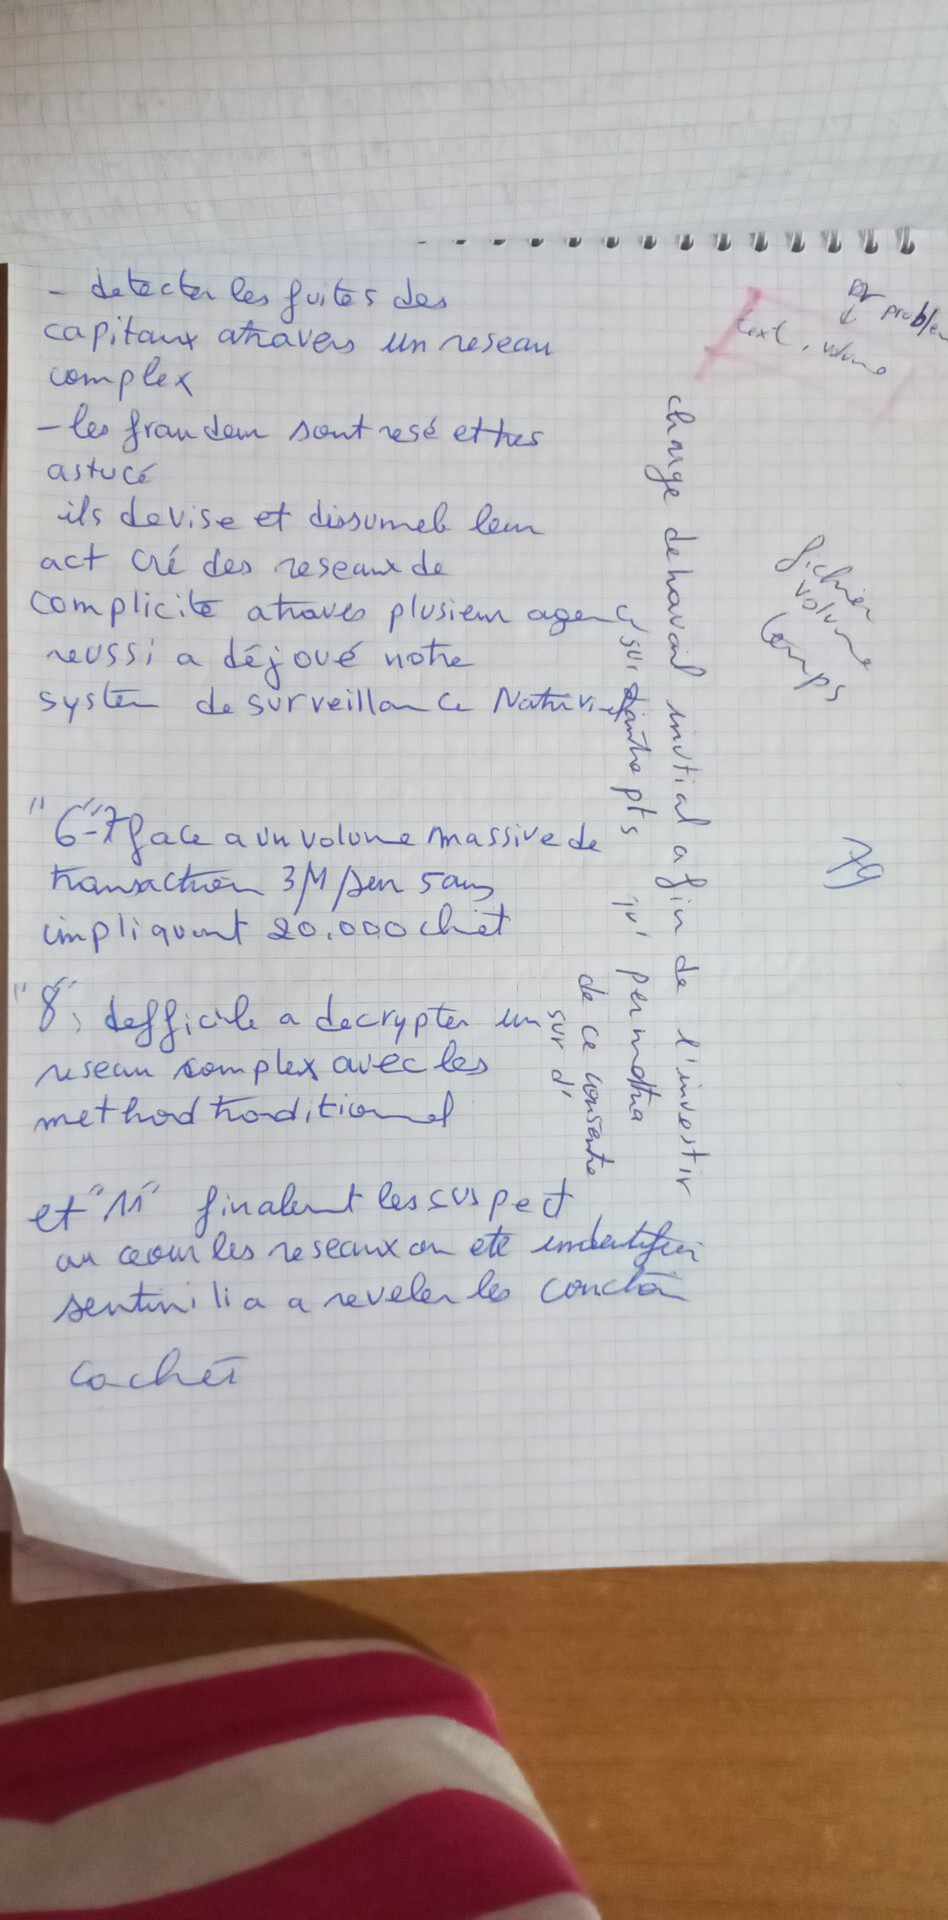 - detecter les fuites des
capitaux atravers un reseau
complex
- les fraudem sont resé et tres
astucé
ils devise et dissumeb leur
act cré des reseaux de
complicité atraves plusieur agence
reussi a déjoué notre
systèm de surveillance
"6"-7 face a un volume massive de
transaction 3M sur 5 ans
impliquant 20.000 chiet
"8", defficile a decrypter un
reseau complex avec les
method traditionnel
et "11" finalemt les suspect
au coeur les reseaux on eté
sentinilia a reveler les
cachét
charge de travail initial afin de l'investir
sur pts permettra
de ce
sur d'
text, volume
problem
fichier
volume
temps
79